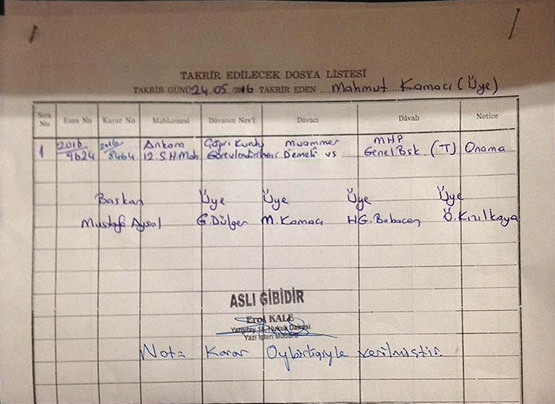 TAKRİR EDİLECEK DOSYA LİSTESİ
TAKRİR GÜNÜ 24.05.2016 TAKRİR EDEN Mahmut Kamacı (Üye)
Sıra No Esas No Karar No Mahkemesi Davanın Nev'i Davacı Dâvalı Netice
1 2016 2016 Ankara Çağrı Kurulu Muammer MHP
9624 8464 12. S.H.Mah. Demeli vs Genel Bşk (T) Onama
Başkan Üye Üye Üye Üye
Mustafa Aysal G. Dülger M. Kamacı HG. Babacan Ö. Kızılkaya
ASLI GİBİDİR
Erol KALE
Yargıtay 18. Hukuk Dairesi
Yazı İşleri Müdürü
Nota Karar Oybirliğiyle verilmiştir.